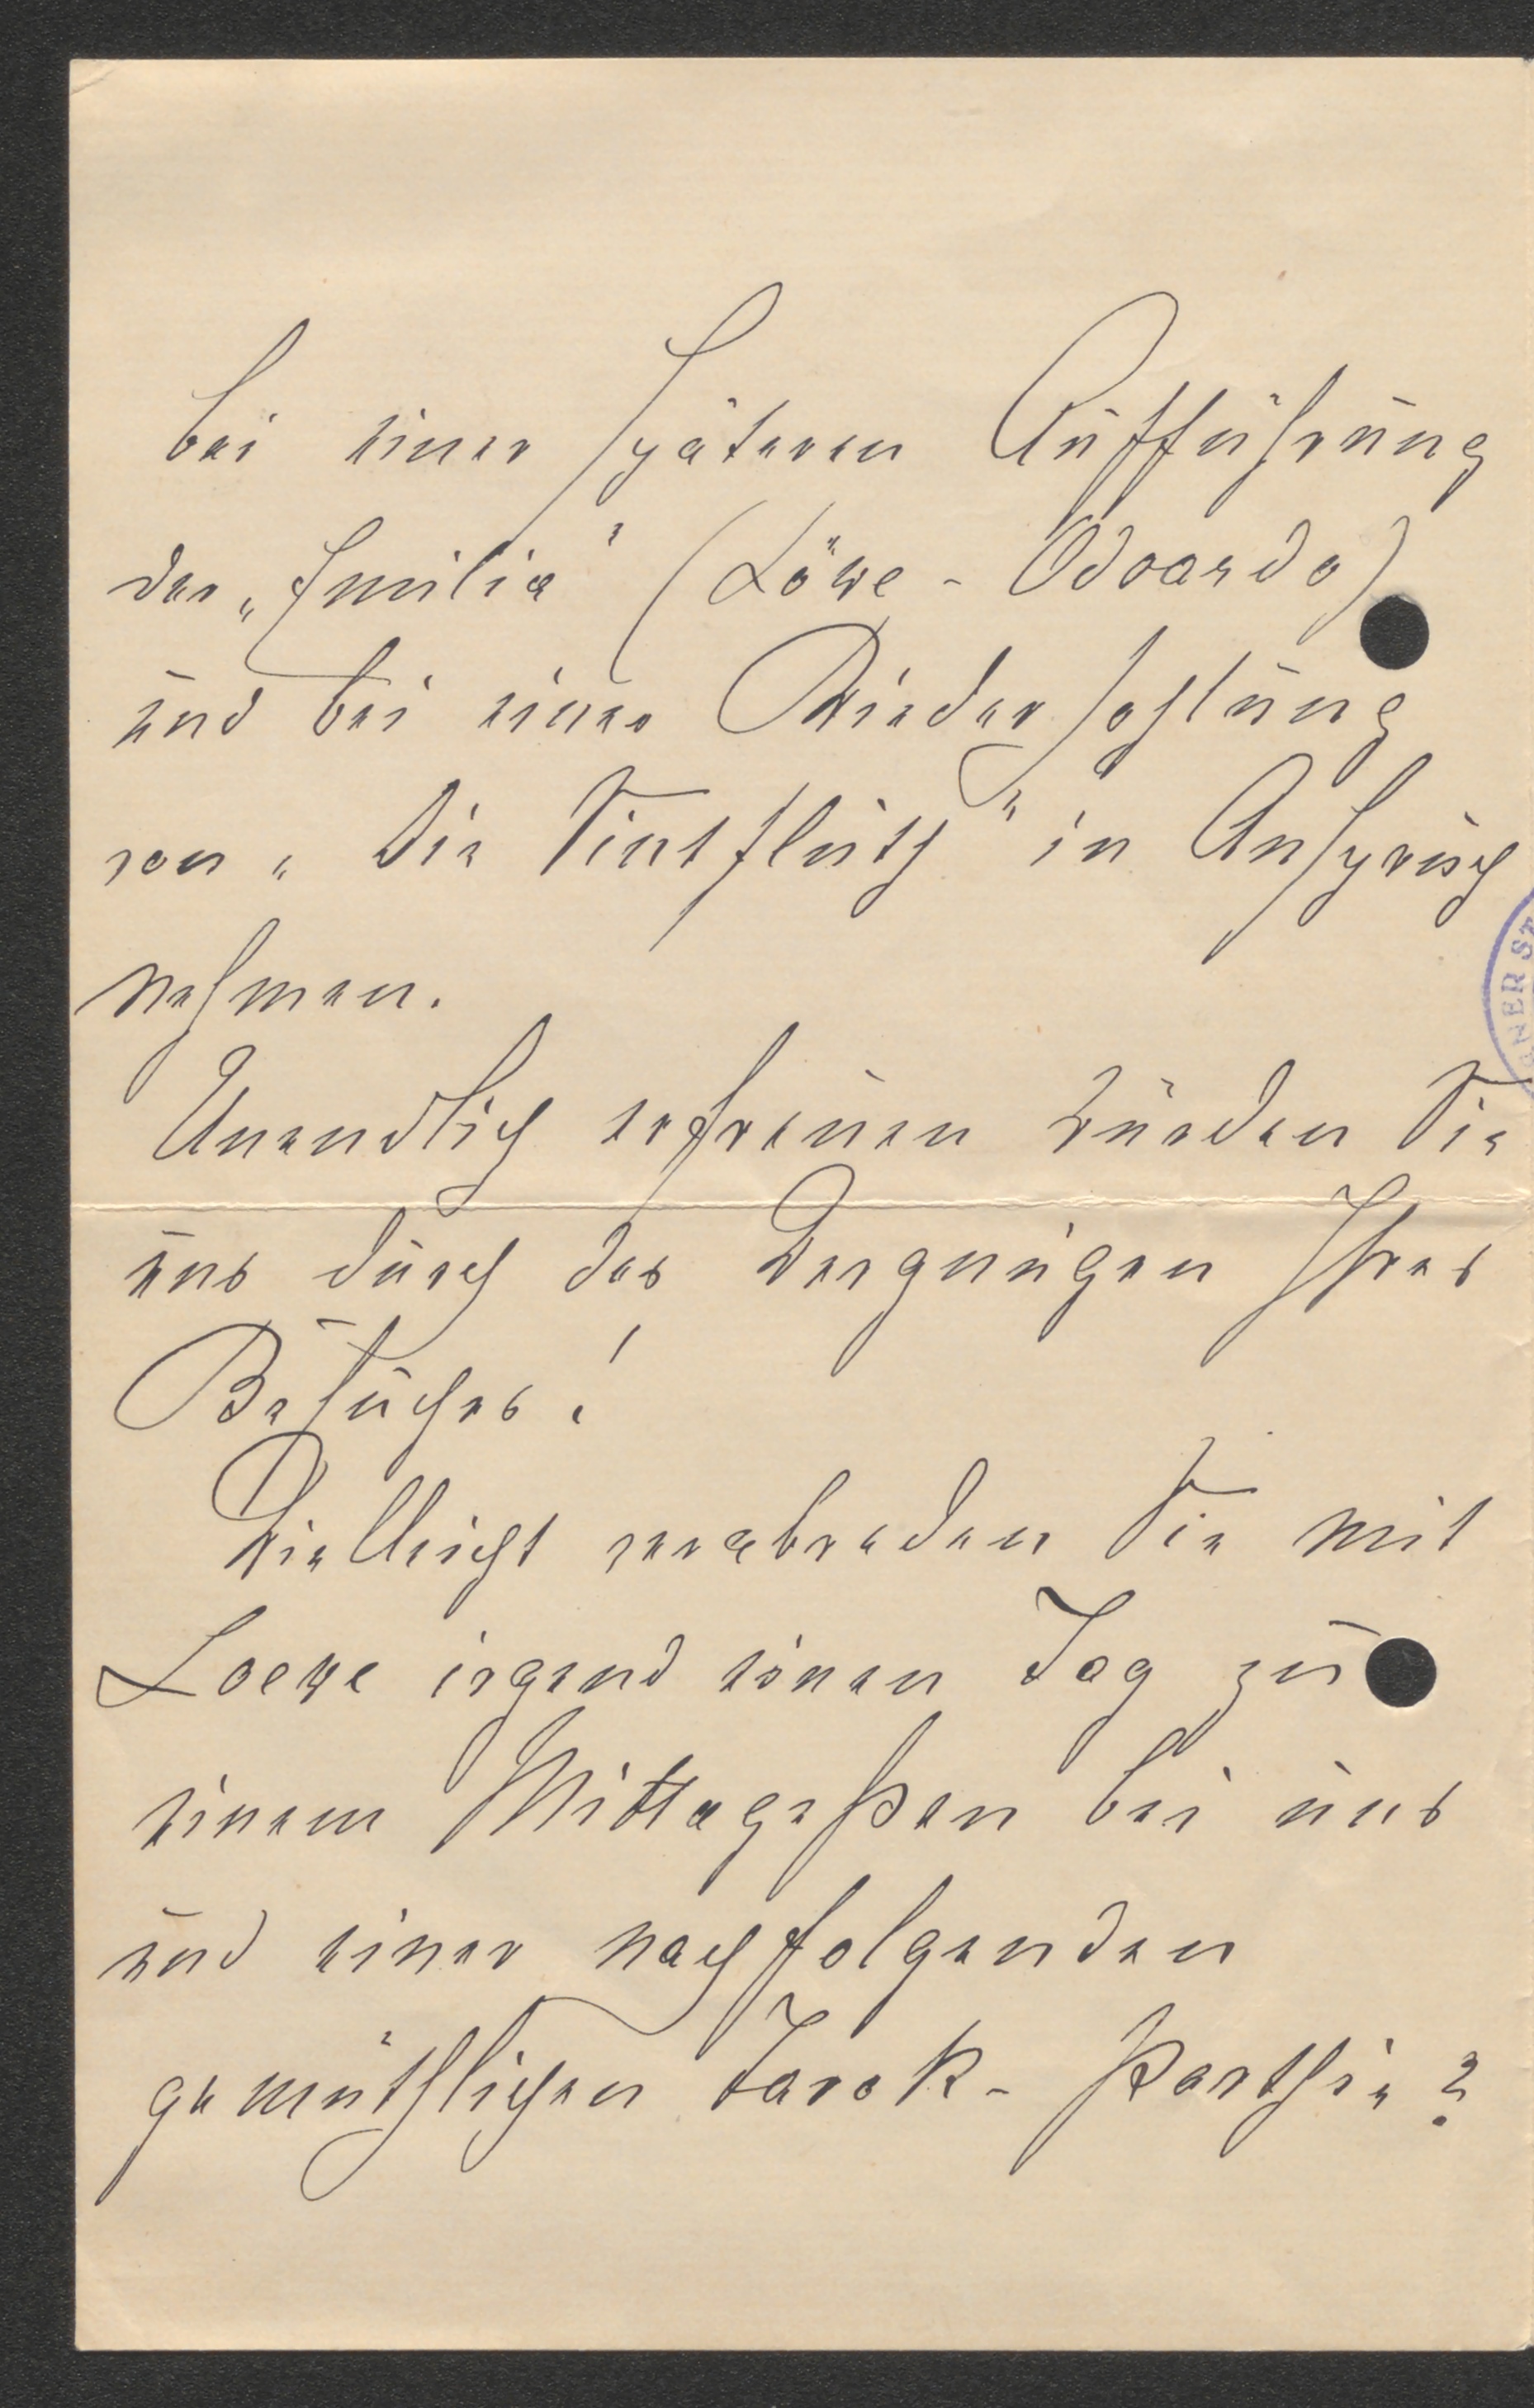 bei einer späteren Aufführung
der „Emilia" (Löwe - Odoardo)
und bei einer Wiederhohlung
von „Die Sintfluth" in Anspruch
nehmen.
NER ST
Unendlich erfreuen würden Sie
uns durch das Vergnügen Ihres
Besuches!
Vielleicht verabreden Sie mit
Loewe irgend einen Tag zu
einem Mittageßen bei uns
und einer nachfolgenden
gemüthlichen Tarok- Parthie?